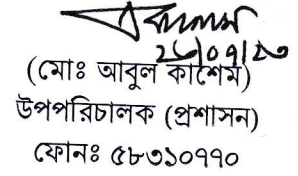 ২৬/০৭/২৩
(মোঃ আবুল কাশেম)
উপপরিচালক (প্রশাসন)
ফোনঃ ৫৮৩১০৭৭০